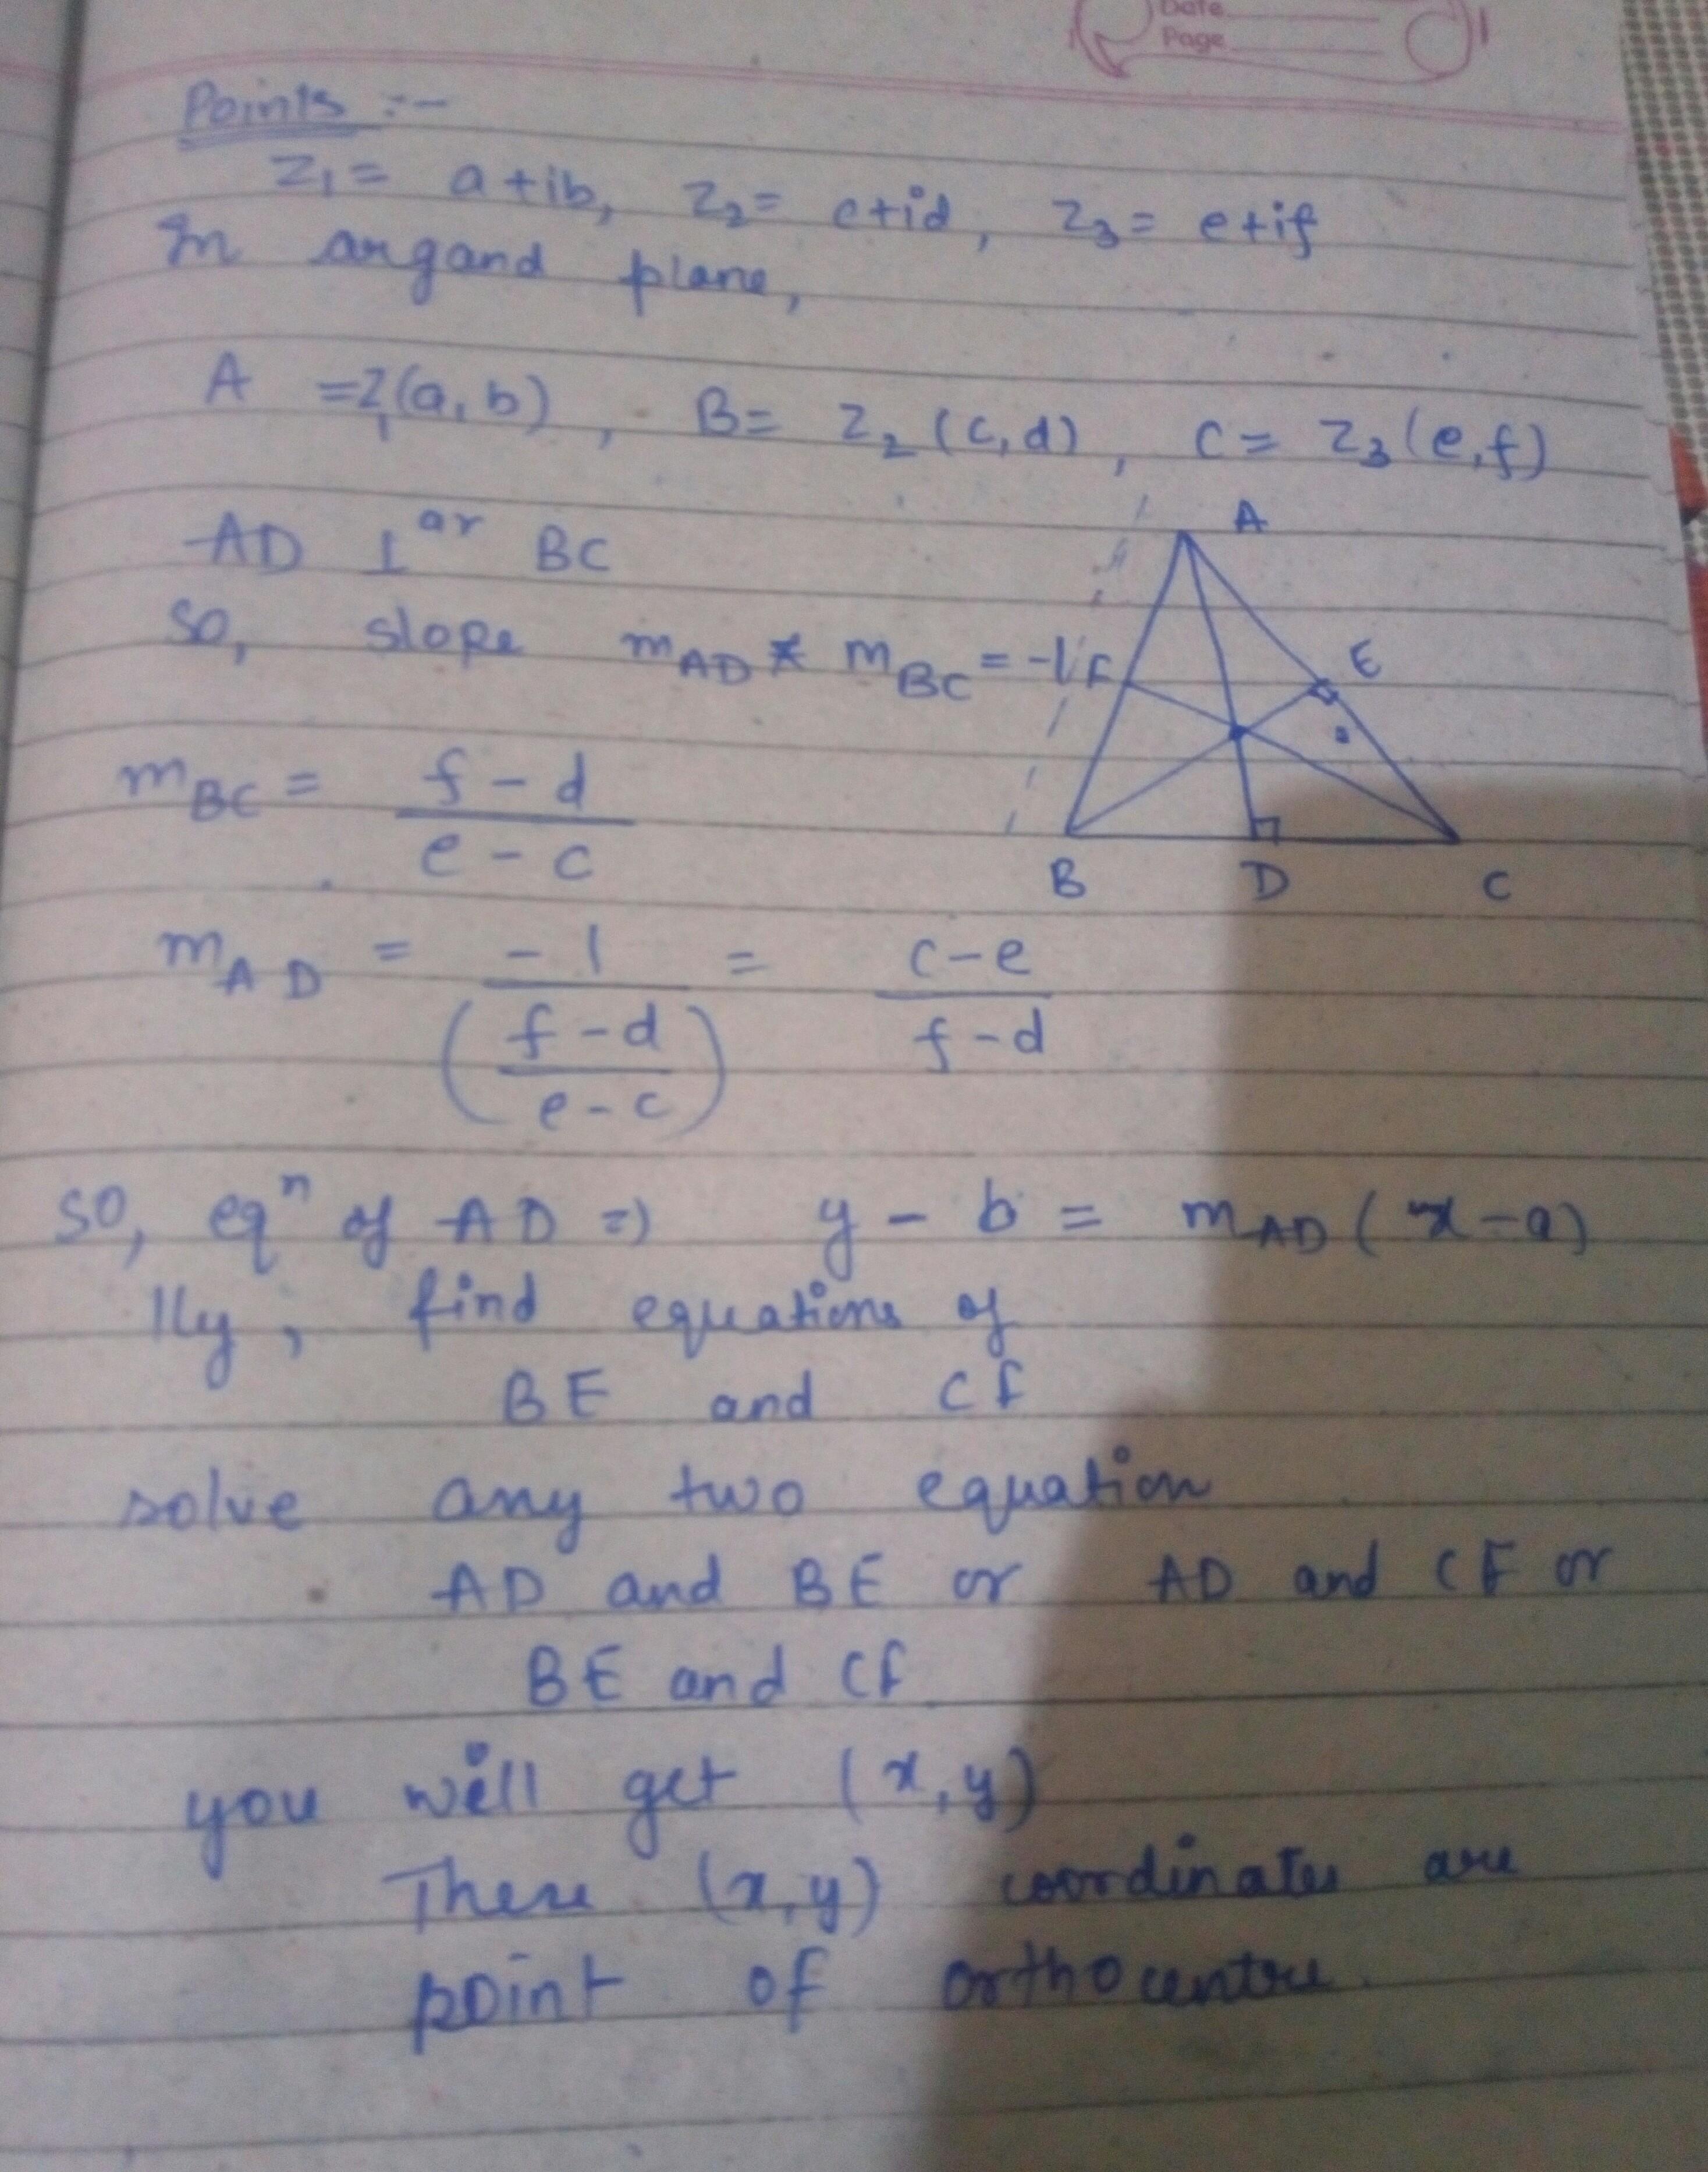 Date
Page
Points :-
z₁ = a+ib, z₂ = c+id, z₃ = e+if
In argand plane,
A = z₁(a,b), B = z₂(c,d), C = z₃(e,f)
AD ⊥ᵃʳ BC
so, slope m_AD * m_BC = -1
A
F
E
B
D
C
m_BC = (f-d)/(e-c)
m_AD = -1/((f-d)/(e-c)) = (c-e)/(f-d)
so, eqⁿ of AD => y - b = m_AD (x-a)
lly, find equations of
BE and CF
solve any two equation
AD and BE or AD and CF or
BE and CF
you will get (x,y)
These (x,y) coordinates are
point of orthocentre.